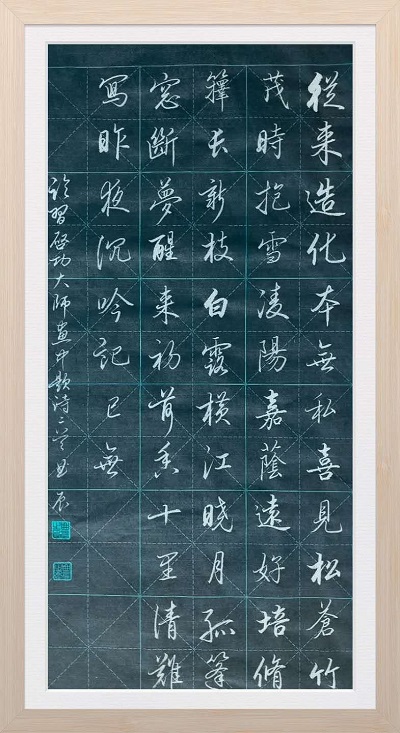 從来造化本無私喜見松蒼竹
茂時抱雪凌陽嘉蔭遠好培脩
籜長新枝白露橫江曉月孤篷
窓斷夢醒来初荷香十里清難
寫昨夜沉吟記已無
临習啓功大師畫中题詩二首辰